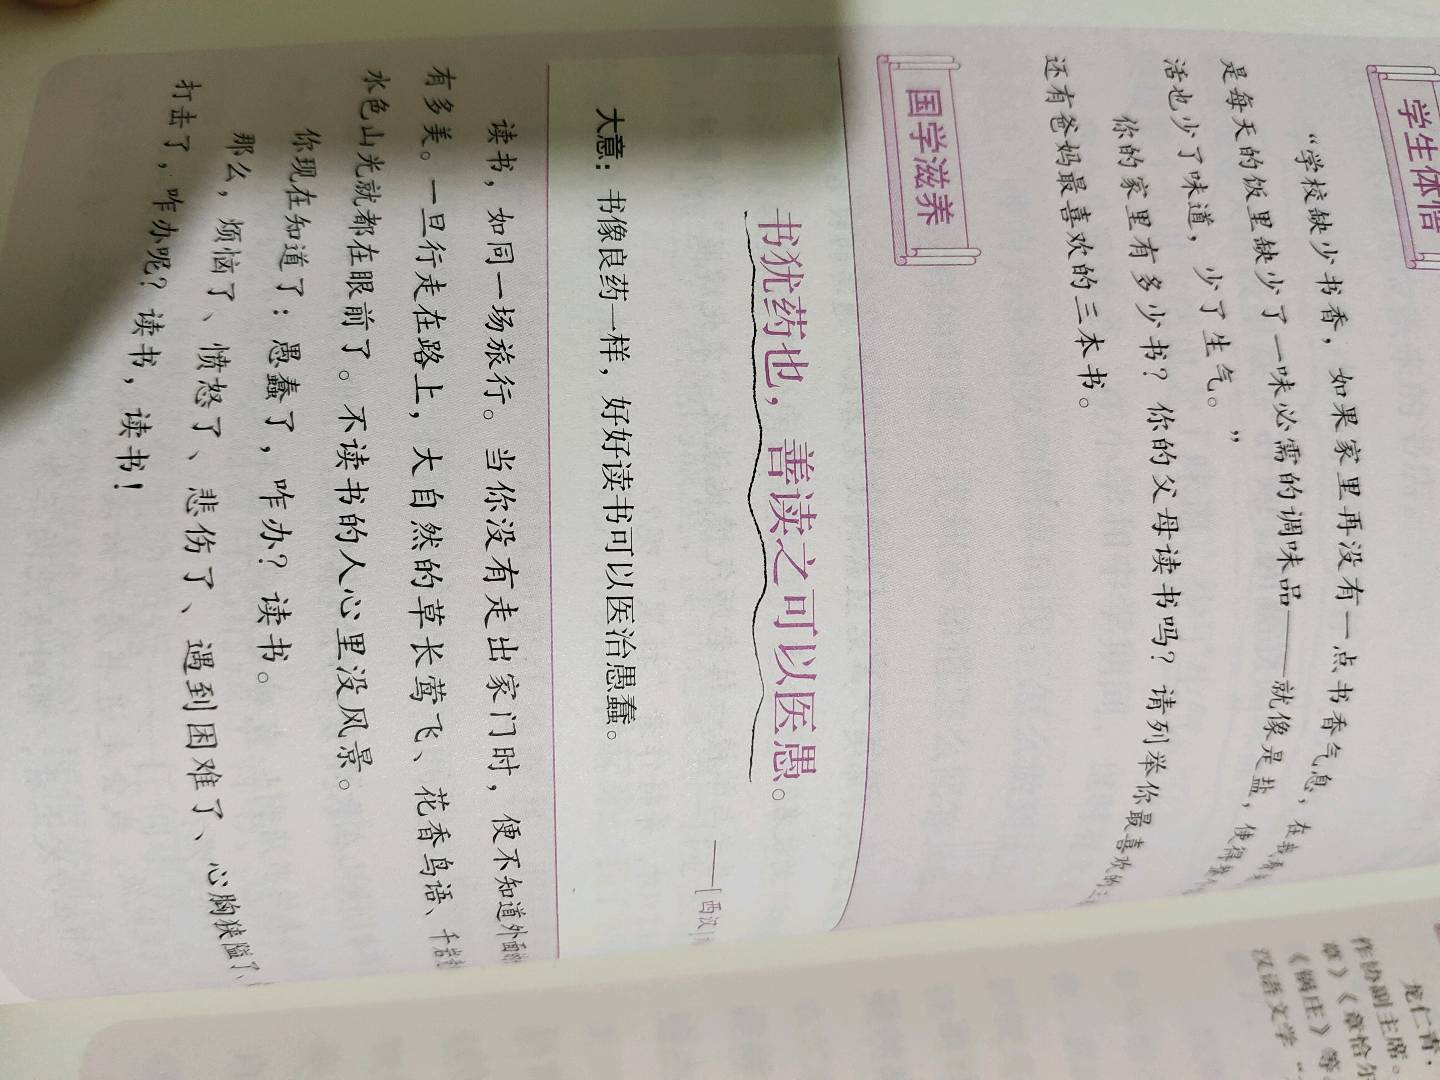 学生体悟
“学校缺少书香，如果家里再没有一点书香气息，在我看
是每天的饭里缺少了一味必需的调味品——就像是盐，使得
活也少了味道，少了生气。”
你的家里有多少书？你的父母读书吗？请列举你最喜欢的
还有爸妈最喜欢的三本书。
国学滋养
书犹药也，善读之可以医愚。
——［西汉］
大意：书像良药一样，好好读书可以医治愚蠢。
读书，如同一场旅行。当你没有走出家门时，便不知道外面
有多美。一旦行走在路上，大自然的草长莺飞、花香鸟语、千
水色山光就都在眼前了。不读书的人心里没风景。
你现在知道了：愚蠢了，咋办？读书。
那么，烦恼了、愤怒了、悲伤了、遇到困难了、心胸狭隘了、
打击了，咋办呢？读书，读书！
龙仁青，
作协副主席。
章》《章恰尔
《锅庄》等
汉语文学“